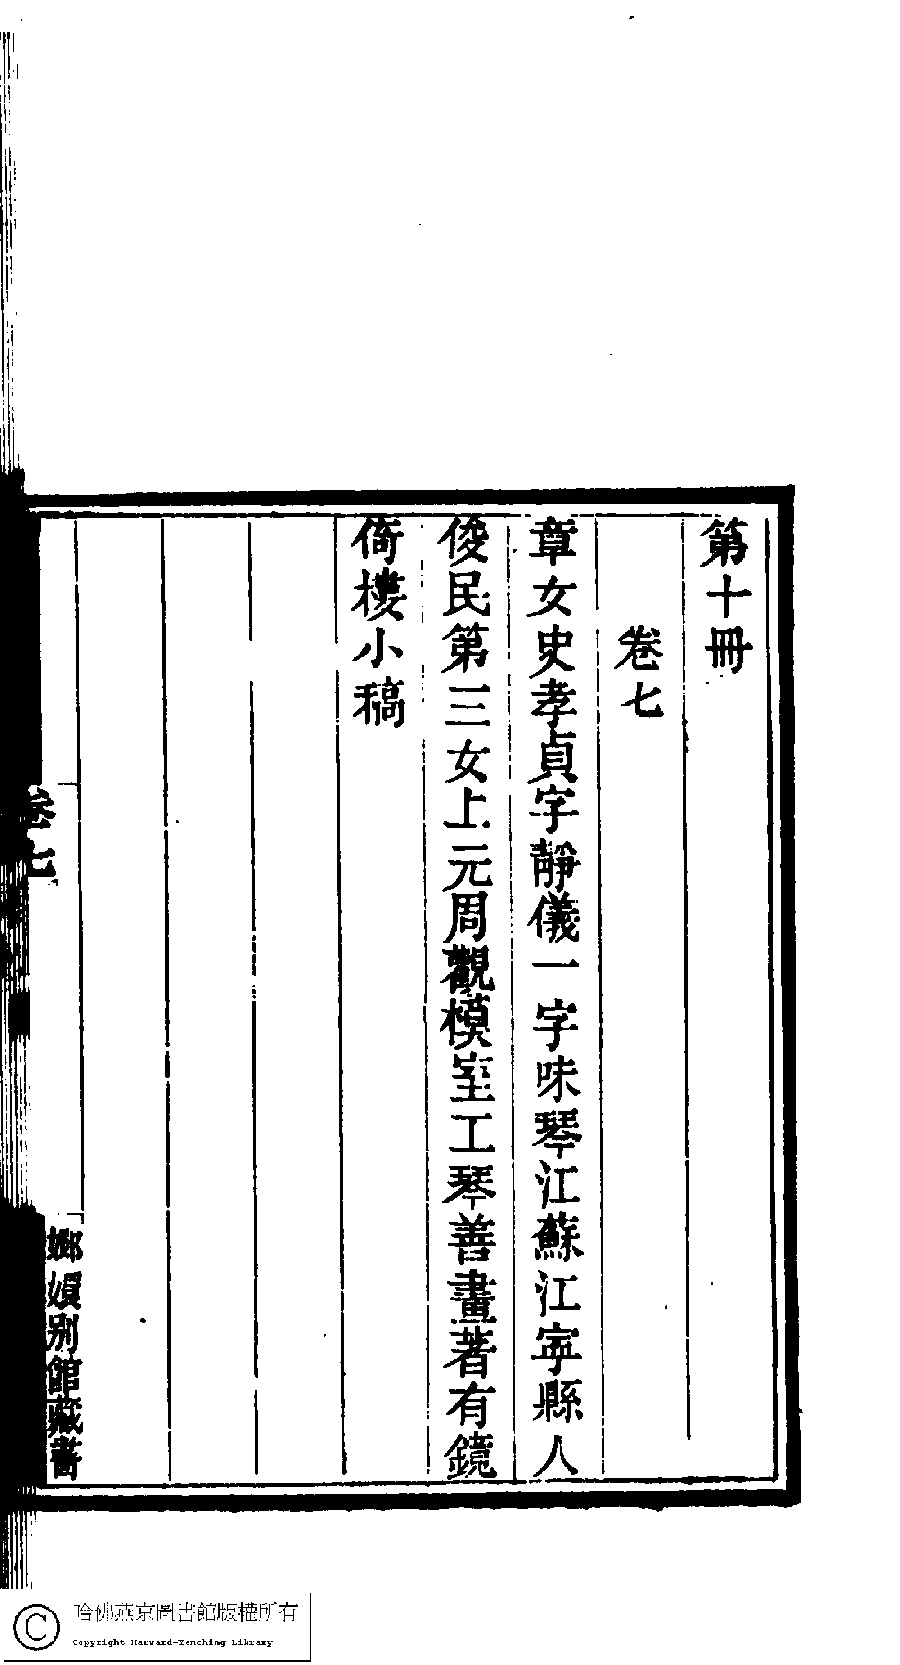 第十冊
卷七
章女史孝貞字靜儀一字味琴江蘇江寧縣人
俊民第三女上元周觀模室工琴善畫著有鏡
倚樓小稿
卷七
嫏嬛别館藏書
哈佛燕京圖書館版權所有
Copyright Harvard-Yenching Library